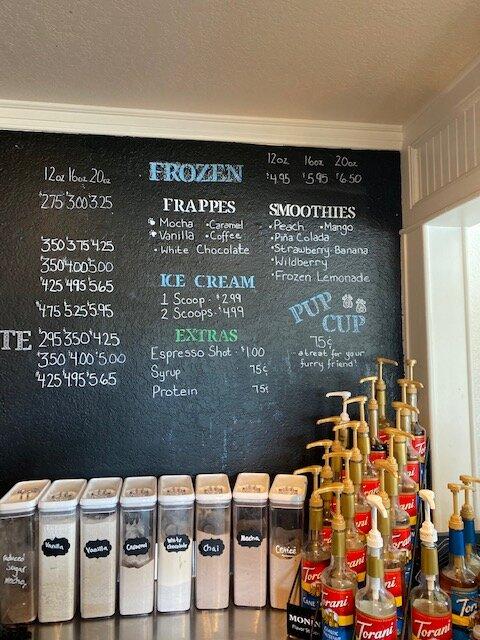 12oz 16oz 20oz
$2.75 $3.00 $3.25
$3.50 $3.75 $4.25
$3.50 $4.00 $5.00
$4.25 $4.95 $5.65
$4.75 $5.25 $5.95
TE $2.95 $3.50 $4.25
$3.50 $4.00 $5.00
$4.25 $4.95 $5.65
FROZEN
12oz 16oz 20oz
$4.95 $5.95 $6.50
FRAPPES
• Mocha • Caramel
• Vanilla • Coffee
• White Chocolate
ICE CREAM
1 Scoop - $2.99
2 Scoops - $4.99
EXTRAS
Espresso Shot - $1.00
Syrup 75¢
Protein 75¢
SMOOTHIES
• Peach • Mango
• Piña Colada
• Strawberry-Banana
• Wildberry
• Frozen Lemonade
PUP
CUP
75¢
- a treat for your
furry friend!
Reduced
Sugar
Mocha
Vanilla
Vanilla
Caramel
White
Chocolate
Chai
Mocha
Coffee
Torani
Torani
Torani
Torani
Torani
Torani
Torani
Torani
MONIN